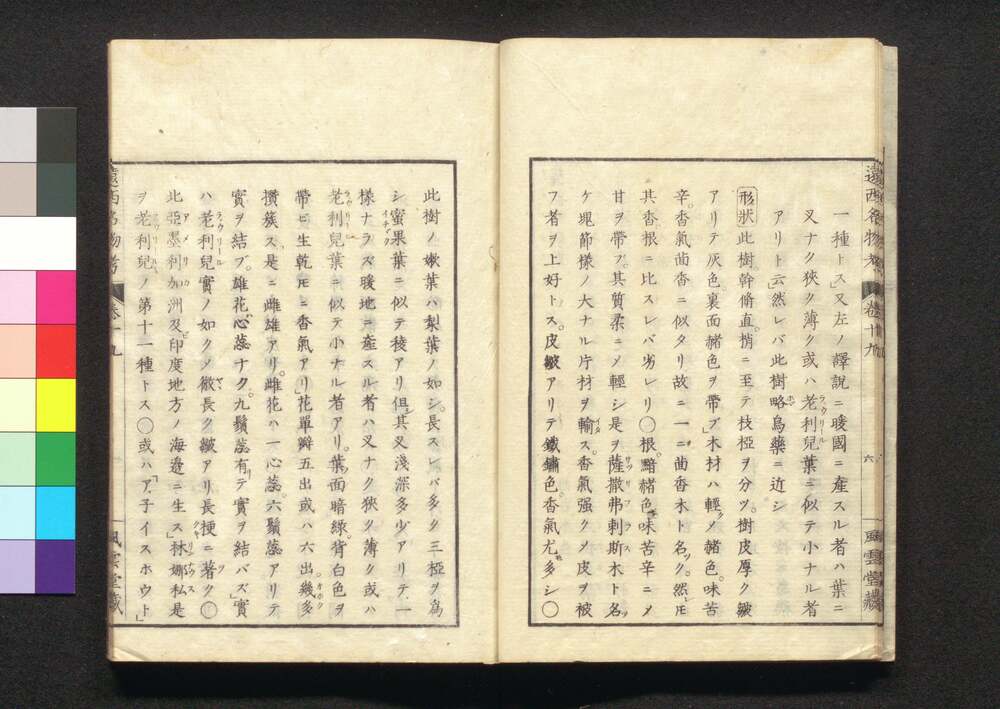 一種トス」又左ノ譯説ニ暖國ニ産スル者ハ葉ニ
叉ナク狹ク薄ク或ハ老利兒葉ニ似テ小ナル者
アリト云」然レバ此樹略烏藥ニ近シ
形狀此樹幹脩直。梢ニ至テ枝椏ヲ分ツ。樹皮厚ク皺
アリテ灰色。裏面赭色ヲ帶ブ木材ハ輕メ赭色。味苦
辛。香氣茴香ニ似タリ故ニ一ニ茴香木ト名ク。然𪜈
其香根ニ比スレバ劣レリ〇根。黯赭色。味苦辛ニメ
甘ヲ帶フ其質柔ニメ輕シ是ヲ薩撒弗剌斯木ト名
ケ塊節樣ノ大ナル片材ヲ輸ス。香氣强クメ皮ヲ被
フ者ヲ上好トス。皮皺アリテ鐵鏽色。香氣尤多シ〇
遠西名物考 卷十九 六 風雲堂藏
此樹ノ嫩葉ハ梨葉ノ如シ。長スレバ多ク三椏ヲ爲
シ蜜果葉ニ似テ稜アリ但其叉淺深多少アリテ一
樣ナラズ暖地ニ産スル者ハ叉ナク狹ク薄ク或ハ
老利兒葉ニ似テ小ナル者アリ。葉面暗綠。背白色ヲ
帶ビ生乾𪜈ニ香氣アリ」花單瓣五出或ハ六出幾多
攢簇ス是ニ雌雄アリ。雌花ハ一心蕊。六鬚蕊アリテ
實ヲ結ブ。雄花心蕊ナク。九鬚蕊有テ實ヲ結バズ」實
ハ老利兒實ノ如クメ微長ク皺アリ長梗ニ著ク〇
北亞墨利加洲及印度地方ノ海邉ニ生ス」林娜私是
ヲ老利兒ノ第十一種トス〇或ハ「ア子イスホウト」
遠西名物考 卷十九 風雲堂藏